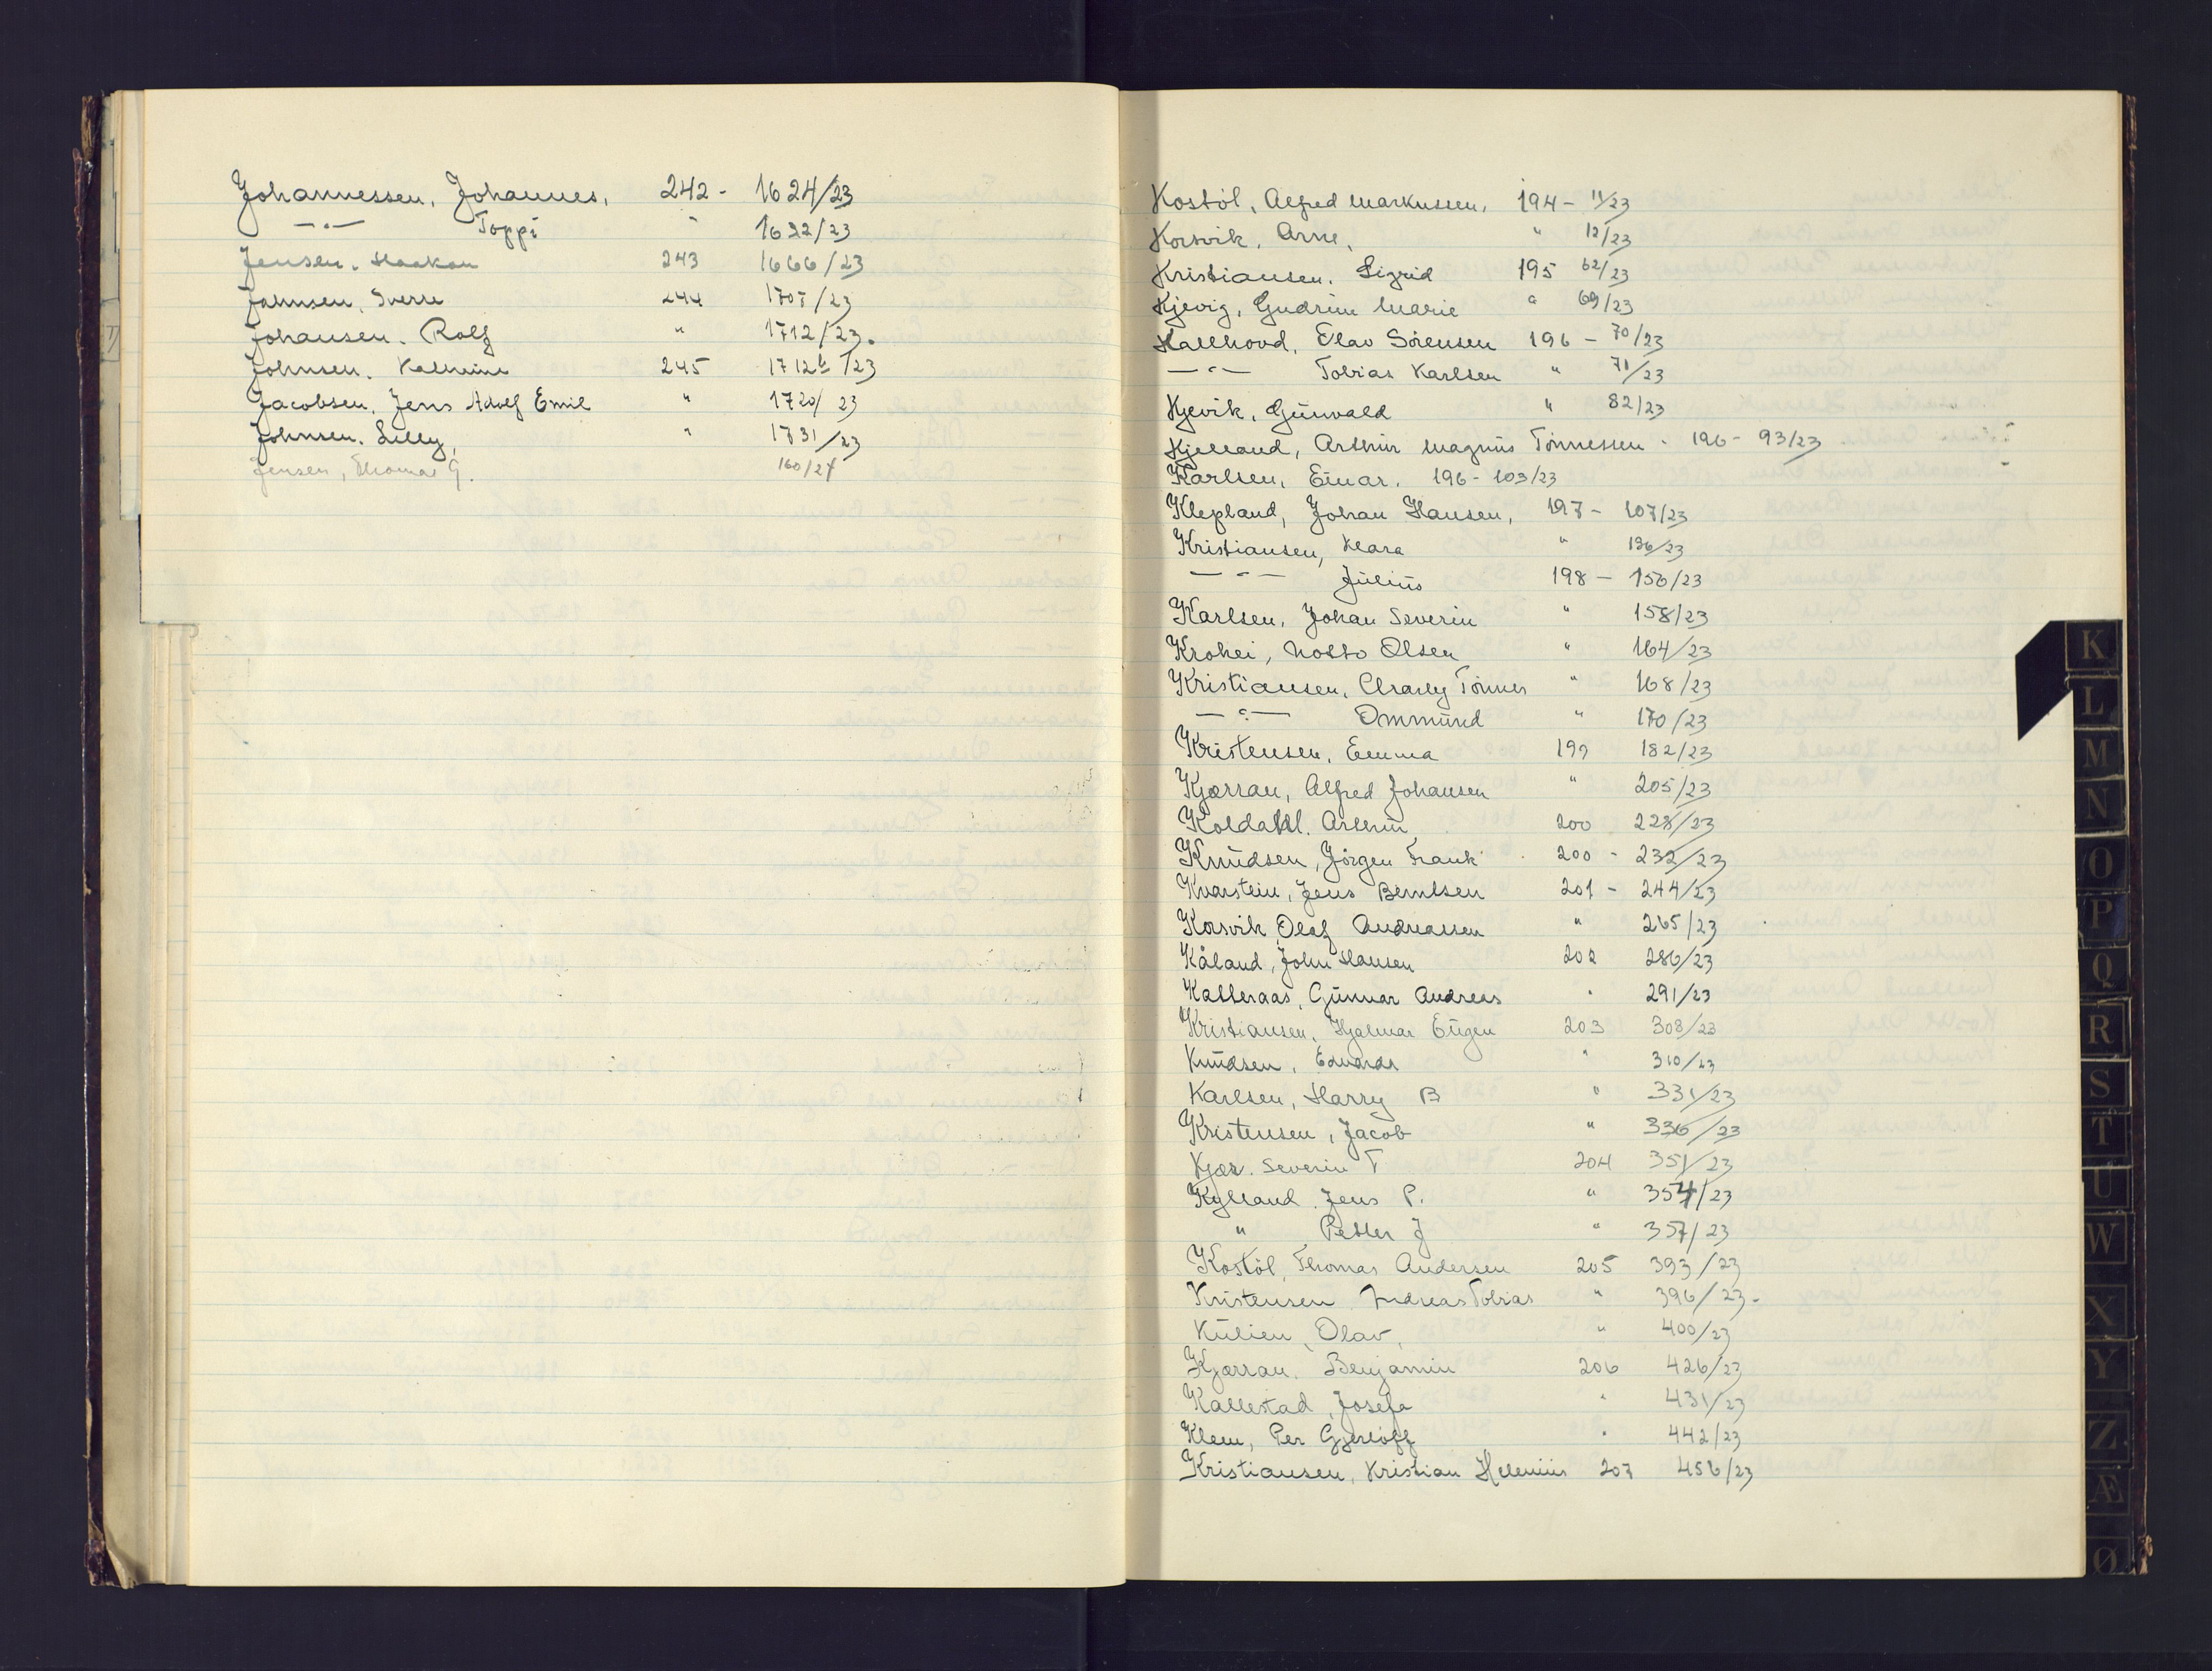 Johannessen, Johannes, 242 - 1624/23
— " — Toppi " 1622/23
Jensen. Haakon 243 1666/23
Jahnsen, Sverre 244 1707/23
Johansen. Rolf " 1712/23.
Johnsen. Kathrine 245 1712b/23
Jacobsen, Jens Adolf Emil " 1720/23
Johnsen. Lilly, " 1731/23
Jensen, Thomas G. 160/24
Kostöl, Alfred Markussen, 194 - 11/23
Korsvik, Arne, " 12/23
Kristiansen, Sigrid 195 62/23
Kjevig, Gudrun Marie " 69/23
Kallhovd, Olav Sörensen 196 - 70/23
— " — Tobias Karlsen " 71/23
Kjevik, Gunvald " 82/23
Kjelland, Arthur Magnus Tönnessen - 196 - 93/23
Karlsen, Einar. 196 - 103/23
Klepland, Johan Hansen, 197 - 107/23
Kristiansen, Klara " 136/23
— " — Julius 198 - 156/23
Karlsen, Johan Severin " 158/23
Krohei, Notto Olsen " 164/23
Kristiansen, Charly Tönnes " 168/23
— " — Ommund " 170/23
Kristensen, Emma 199 182/23
Kjærran, Alfred Johansen " 205/23
Koldahl. Arthur 200 228/23
Knudsen, Jörgen Frank 200 - 232/23
Kvarstein, Jens Berntsen 201 - 244/23
Korsvik Olaf Andreassen " 265/23
Kåland, John Hansen 202 286/23
Katteraas, Gunnar Andreas " 291/23
Kristiansen, Hjalmar Eugen 203 308/23
Knudsen, Edvarda " 310/23
Karlsen, Harry B " 331/23
Kristensen, Jacob " 336/23
Kjær. Severin T 204 351/23
Kylland. Jens P. " 354/23
" Petter J " 357/23
Kostöl, Thomas Andersen 205 393/23
Kristensen Andreas Tobias " 396/23-
Kulien, Olav, " 400/23
Kjærran. Benjamin 206 426/23
Kallestad, Josefa " 431/23
Klem, Per Gjerlöff " 442/23
Kristiansen, Kristian Helenius 207 456/23
K
L
M
N
O
P
Q
R
S
T
U
W
X
Y
Z
Æ
Ø